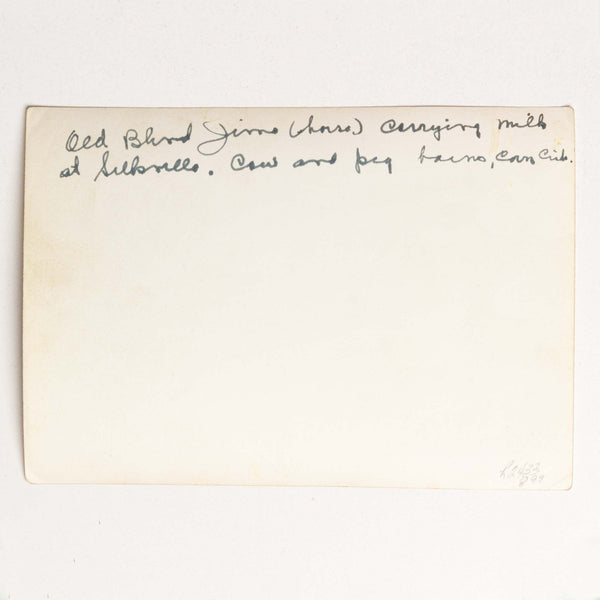 Old Blind Jim (horse) carrying milk
at Silkville. Cow and pig barns, corn crib.